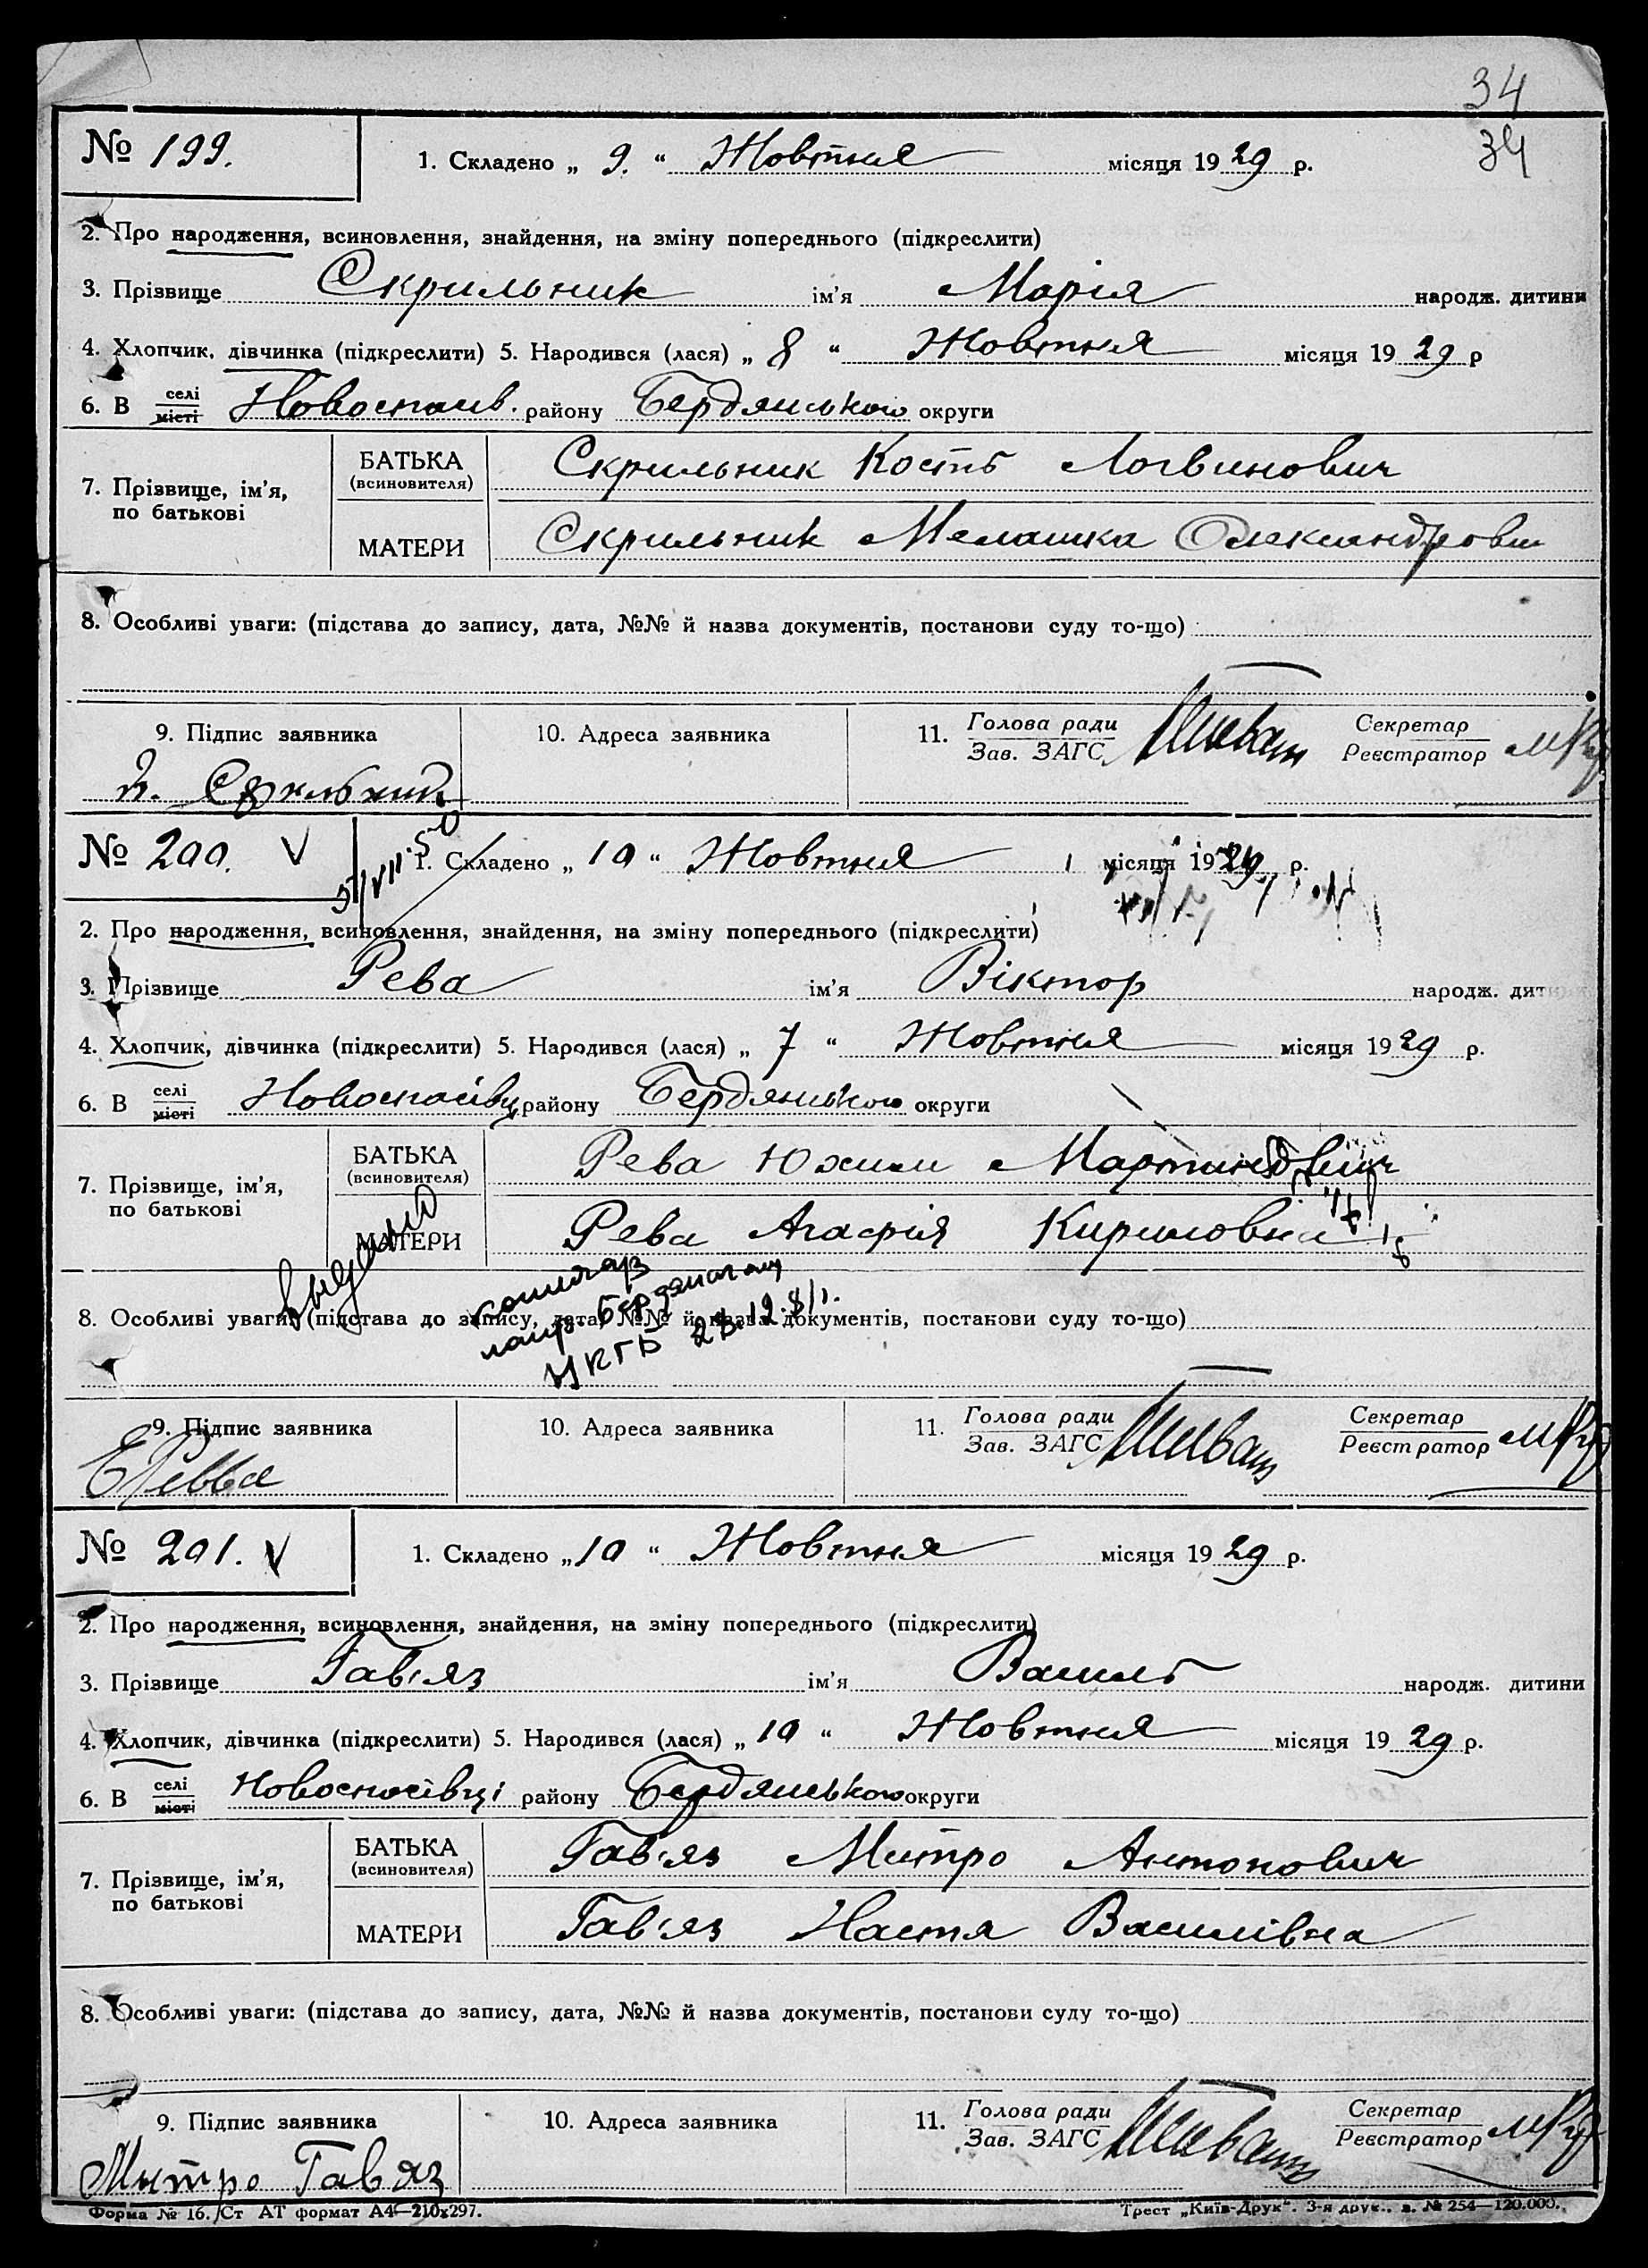 34
34
№ 199. 1. Складено „ 9. “ Жовтня місяця 1929 р.
2. Про народження, всиновлення, знайдення, на зміну попереднього (підкреслити)
3. Прізвище Скрильник ім’я Марія народж. дитини
4. Хлопчик, дівчинка (підкреслити) 5. Народився (лася) „ 8 “ Жовтня місяця 1929 р
6. В селі місті Новоспасів. району Бердянського округи
7. Прізвище, ім’я, по батькові
БАТЬКА (всиновителя) Скрильник Кость Логвинович
МАТЕРИ Скрильник Мелашка Олександровн
8. Особливі уваги: (підстава до запису, дата, №№ й назва документів, постанови суду то-що)
9. Підпис заявника 10. Адреса заявника 11. Голова ради Зав. ЗАГС Секретар Реєстратор
№ 200. V 1. Складено „ 10 “ Жовтня місяця 1929 р.
2. Про народження, всиновлення, знайдення, на зміну попереднього (підкреслити)
3. Прізвище Рева ім’я Віктор народж. дитини
4. Хлопчик, дівчинка (підкреслити) 5. Народився (лася) „ 7 “ Жовтня місяця 1929 р.
6. В селі місті Новоспасівці району Бердянського округи
7. Прізвище, ім’я, по батькові
БАТЬКА (всиновителя) Рева Юхим Мартинович
МАТЕРИ Рева Агафія Кириловна
8. Особливі уваги: (підстава до запису, дата, №№ й назва документів, постанови суду то-що)
НКГБ
9. Підпис заявника 10. Адреса заявника 11. Голова ради Зав. ЗАГС Секретар Реєстратор
ЕРевва
№ 201. V 1. Складено „ 10 “ Жовтня місяця 1929 р.
2. Про народження, всиновлення, знайдення, на зміну попереднього (підкреслити)
3. Прізвище Гав'яз ім’я Василь народж. дитини
4. Хлопчик, дівчинка (підкреслити) 5. Народився (лася) „ 10 “ Жовтня місяця 1929 р.
6. В селі місті Новоспасівці району Бердянського округи
7. Прізвище, ім’я, по батькові
БАТЬКА (всиновителя) Гав'яз Митро Антонович
МАТЕРИ Гав'яз Настя Василівна
8. Особливі уваги: (підстава до запису, дата, №№ й назва документів, постанови суду то-що)
9. Підпис заявника 10. Адреса заявника 11. Голова ради Зав. ЗАГС Секретар Реєстратор
Митро Гавяз
Форма № 16. Ст АТ формат А4—210x297. Трест „Київ-Друк“. 3-я друк., з. № 254—120.000.